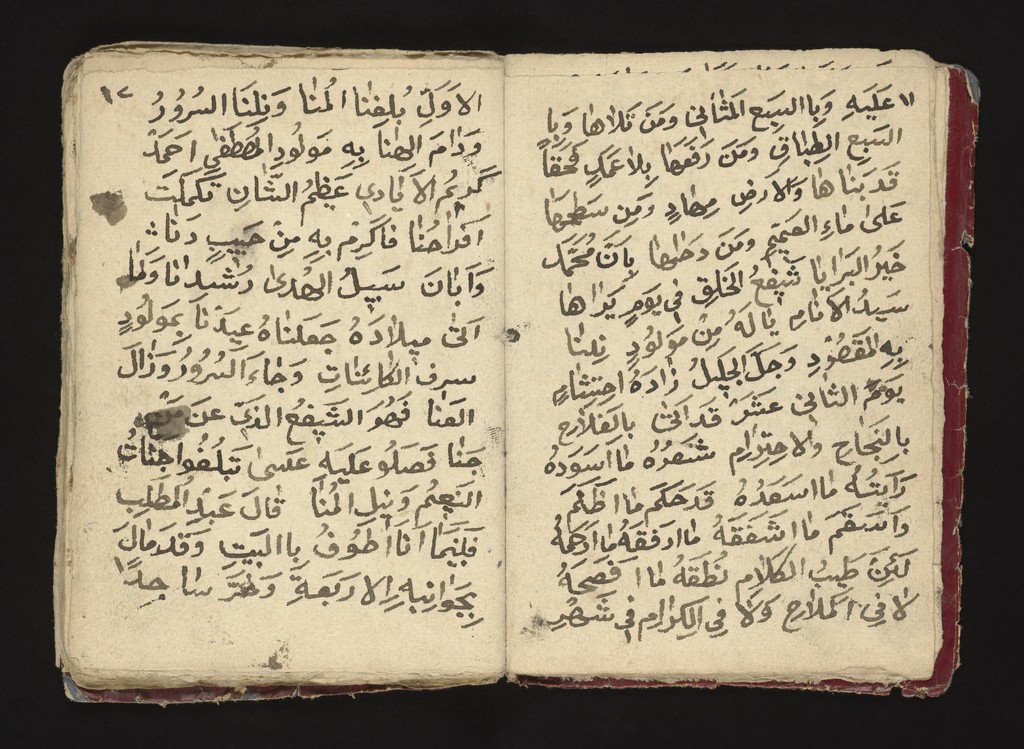 ١١
عليه وبا السبع المثاني ومن تلاها وبا
السبع الطباق ومن رفعها بلا عمد محقا
قد بناها والارض مهاد ومن سطحها
على ماء العميم ومن دحاها بان محمد
خير البرايا شفيع الخلق في يوم يراها
سيد الانام يا له من مولود نلنا
به المقصود وجل الجليل زاده احتشام
يوم الثاني عشر قد اتى بالفلاح
بالنجاح والاحترام شعره ما اسوده
رايته ما اسعده قد حكم ما اظلم
واسقم ما اشفقه ما ارفقه ما ارحمه
لكن طيب الكلام نطقه ما افصحه
لا في الملاح ولا في الكرام في شهر
١٢
الاول بلغنا المنا ونلنا السرور
ودام الهنا به مولود المصطفى احمد
كريم الايادي عظيم الشان تكملت
افراحنا فاكرم به من حبيب دنا
وابان سبيل الهدى رشدانا ولما
اتى ميلاده جعلناه عيدنا بمولود
سرف الكائنات وجاء السرور وزال
العنا فهو الشفيع الذي عن من
جنا فصلو عليه عسى تبلغوا جنات
النعيم ونيل المنا قال عبد المطلب
فلينما انا اطوف با البيت وقد مال
بجوانبه الاربعة وخر ساجدا